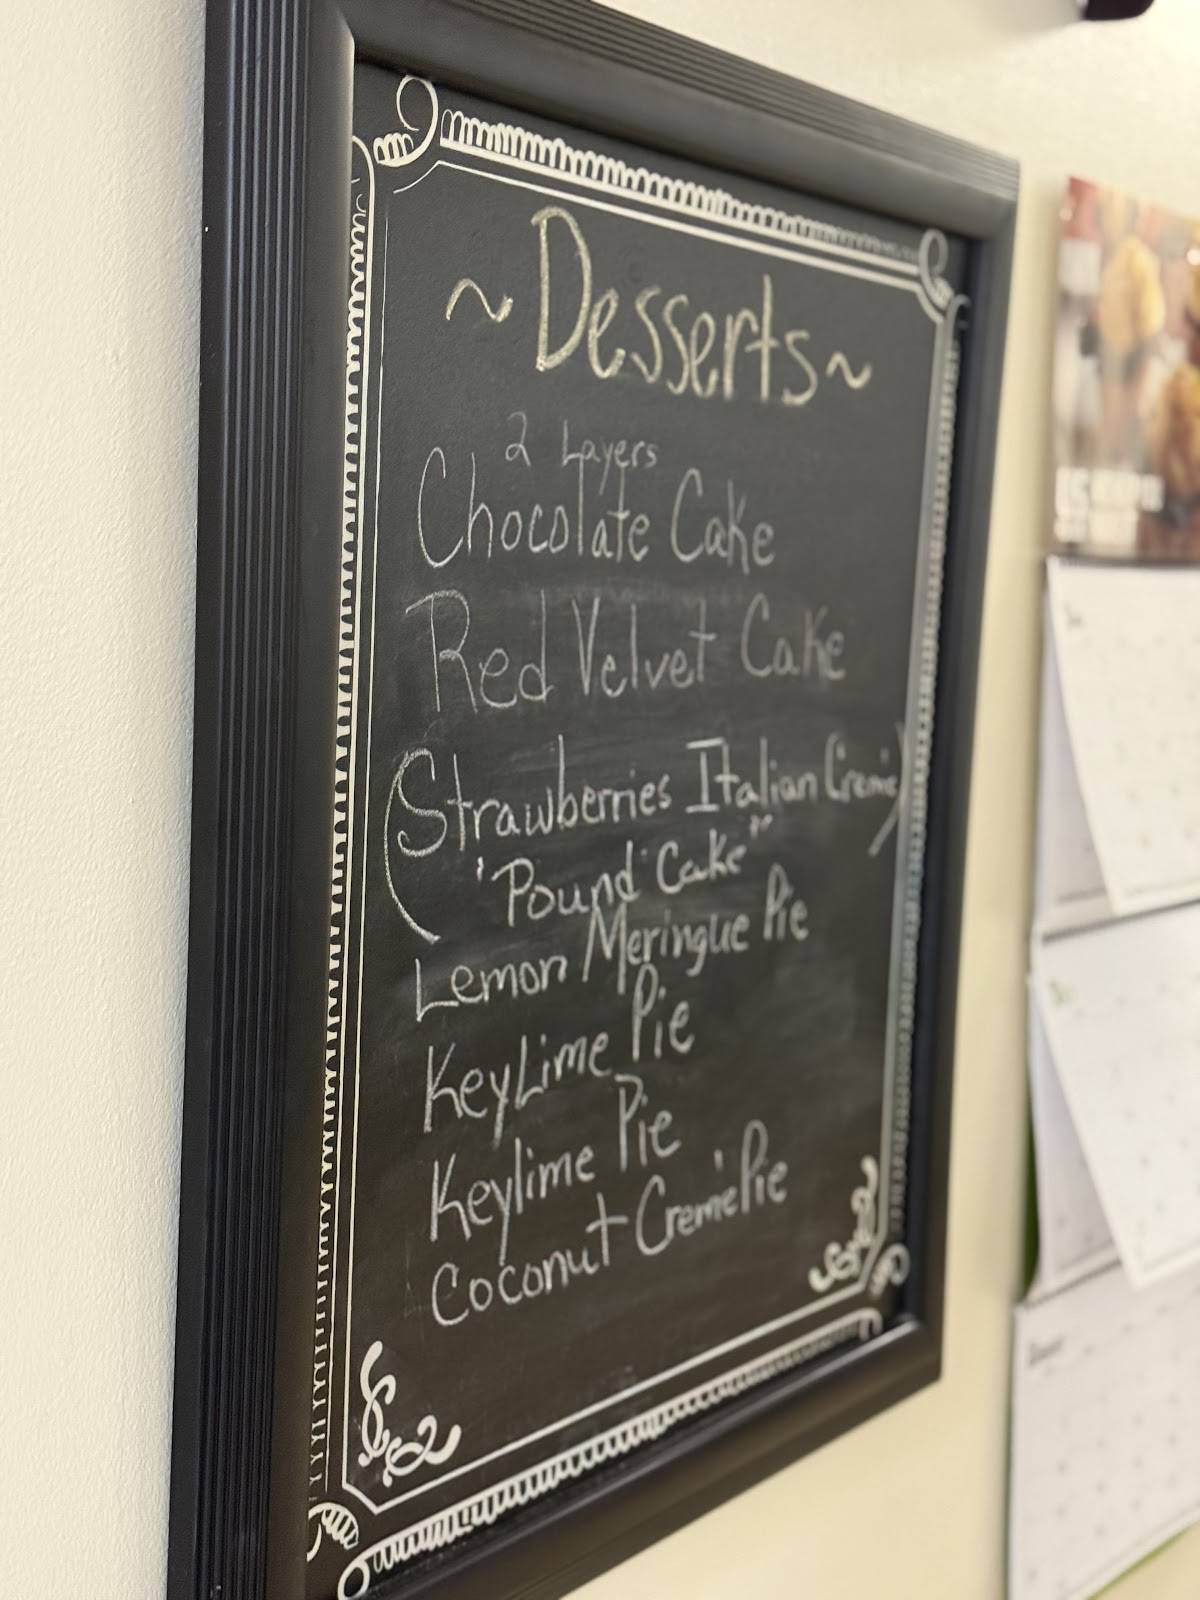 ~Desserts~
2 Layers
Chocolate Cake
Red Velvet Cake
(Strawberries Italian Cremé)
'Pound Cake"
Lemon Meringue Pie
KeyLime Pie
Keylime Pie
Coconut Cremé Pie